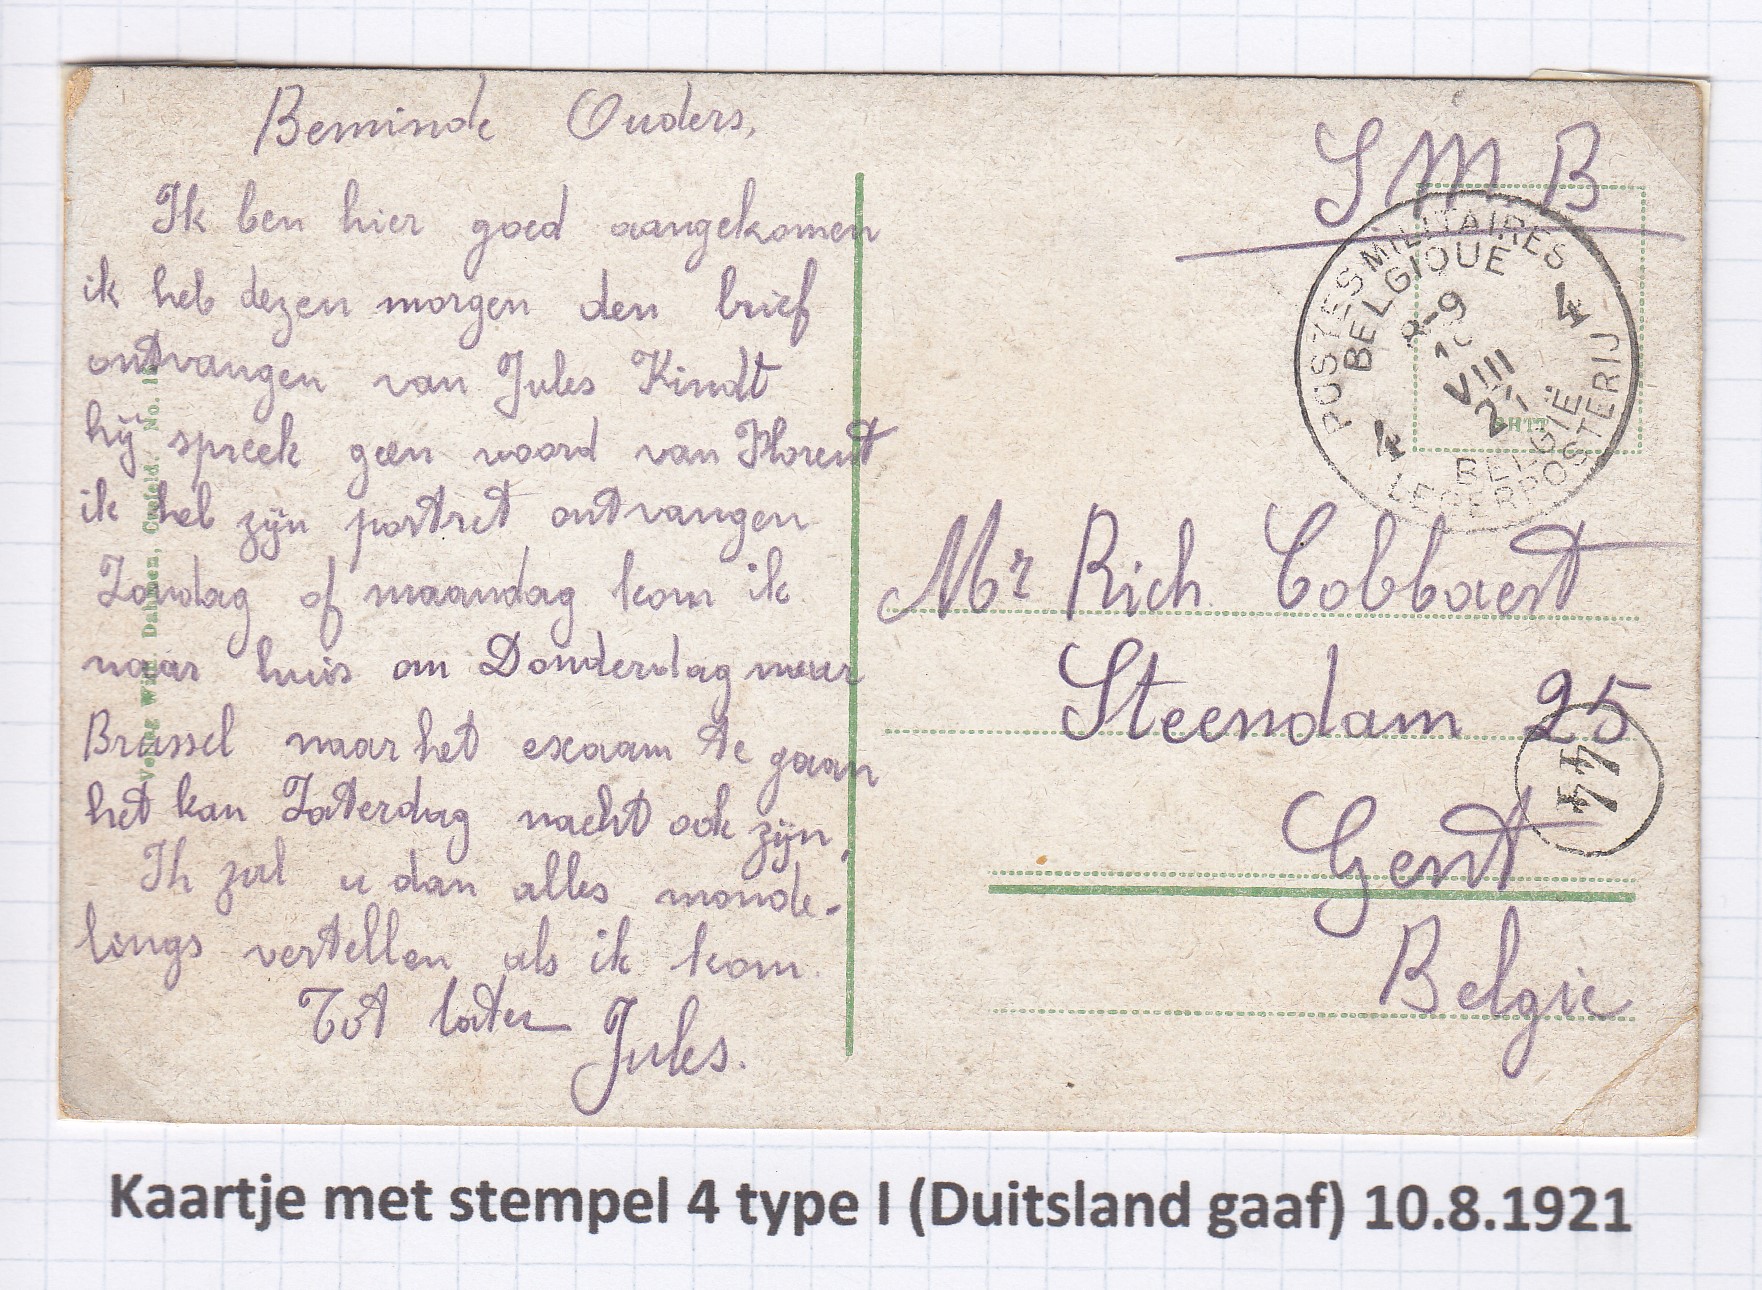 Beminde Ouders,
Ik ben hier goed aangekomen
ik heb dezen morgen den brief
ontvangen van Jules Kindt
hij spreek geen woord van Florent
ik heb zijn portret ontvangen
Zondag of maandag kom ik
naar huis om Donderdag naar
Brussel naar het exaam te gaan
het kan Zaterdag nacht ook zijn.
Ik zal u dan alles monde-
lings vertellen als ik kom.
Tot later
Jules.
Verlag Wilh. Dahmen, Crefeld. No.
S M B
POSTES MILITAIRES
BELGIQUE
4
8-9
VIII
4
BELGIË
LEGERPOSTERIJ
Mr Rich Cobbaert
Steendam 25
44
Gent
Belgie
Kaartje met stempel 4 type I (Duitsland gaaf) 10.8.1921